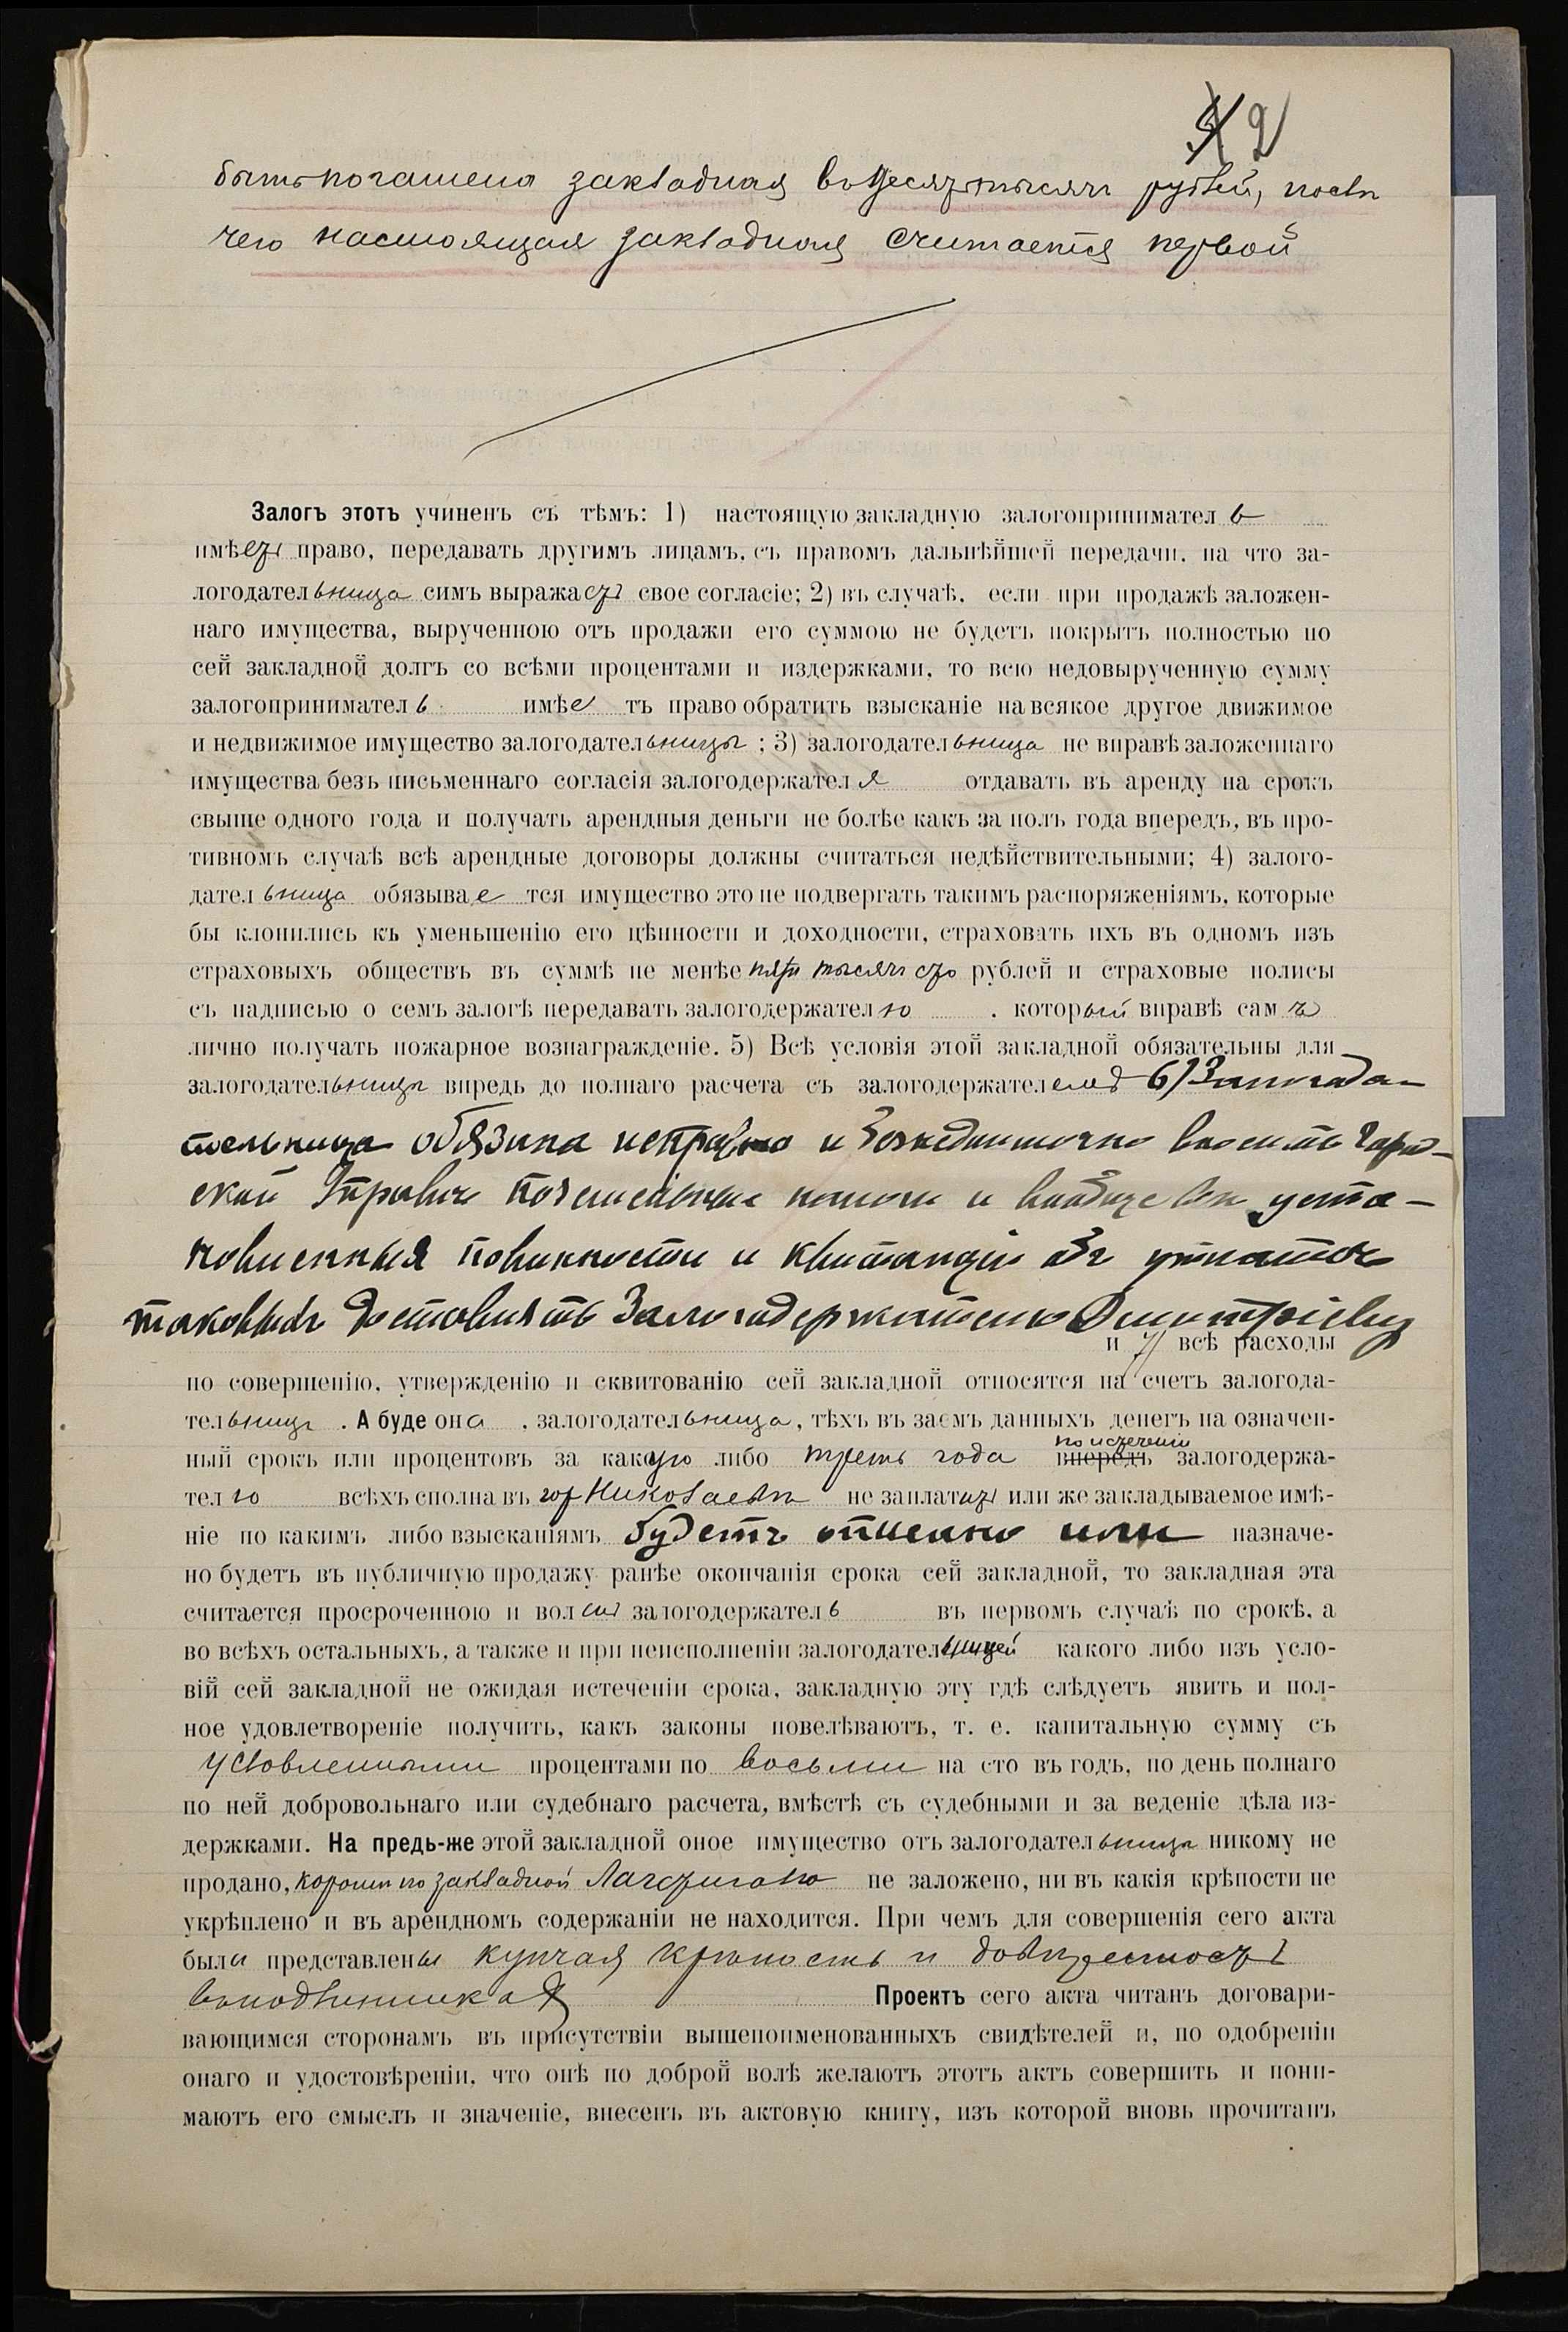 2
быть погашена закладная в десять тысячъ рублей, послѣ
чего настоящая закладная считается первой
Залогъ этотъ учиненъ съ тѣмъ: 1) настоящую закладную залогоприниматель
имѣетъ право, передавать другимъ лицамъ, съ правомъ дальнѣйшей передачи, на что за-
логодательница симъ выражаетъ свое согласіе; 2) въ случаѣ, если при продажѣ заложен-
наго имущества, вырученною отъ продажи его суммою не будетъ покрытъ полностью по
сей закладной долгъ со всѣми процентами и издержками, то всю недовырученную сумму
залогоприниматель имѣетъ право обратить взысканіе на всякое другое движимое
и недвижимое имущество залогодательницы; 3) залогодательница не вправѣ заложеннаго
имущества безъ письменнаго согласія залогодержателя отдавать въ аренду на срокъ
свыше одного года и получать арендныя деньги не болѣе какъ за полъ года впередъ, въ про-
тивномъ случаѣ всѣ арендные договоры должны считаться недѣйствительными; 4) залого-
дательница обязывается имущество это не подвергать такимъ распоряженіямъ, которые
бы клонились къ уменьшенію его цѣнности и доходности, страховать ихъ въ одномъ изъ
страховыхъ обществъ въ суммѣ не менѣе пяти тысячъ сто рублей и страховые полисы
съ надписью о семъ залогѣ передавать залогодержателю . который вправѣ самъ
лично получать пожарное вознагражденіе. 5) Всѣ условія этой закладной обязательны для
залогодательницы впредь до полнаго расчета съ залогодержателемъ 6) Залогода-
тельница обязана исправно и вносить Город-
ской Управѣ налоги и вообще всѣ уста-
новленныя повинности и квитанціи въ уплатѣ
таковыхъ доставлять Залогодержателю Дмитріеву
и 7) всѣ расходы
по совершенію, утвержденію и сквитованію сей закладной относятся на счетъ залогода-
тельницы . А буде она , залогодательница, тѣхъ въ заемъ данныхъ денегъ на означен-
ный срокъ или процентовъ за какую либо треть года впередъ по истеченіи залогодержа-
телю всѣхъ сполна въ гор Николаевѣ не заплатитъ или же закладываемое имѣ-
ніе по какимъ либо взысканіямъ будетъ описано или назначе-
но будетъ въ публичную продажу ранѣе окончанія срока сей закладной, то закладная эта
считается просроченною и воленъ залогодержатель въ первомъ случаѣ по срокѣ, а
во всѣхъ остальныхъ, а также и при неисполненіи залогодательницей какого либо изъ усло-
вій сей закладной не ожидая истеченіи срока, закладную эту гдѣ слѣдуетъ явить и пол-
ное удовлетвореніе получить, какъ законы повелѣваютъ, т. е. капитальную сумму съ
условленными процентами по восьми на сто въ годъ, по день полнаго
по ней добровольнаго или судебнаго расчета, вмѣстѣ съ судебными и за веденіе дѣла из-
держками. На предь-же этой закладной оное имущество отъ залогодательницы никому не
продано, кромѣ по закладной не заложено, ни въ какія крѣпости не
укрѣплено и въ арендномъ содержаніи не находится. При чемъ для совершенія сего акта
были представлены купчая крѣпость и довѣренность
Проектъ сего акта читанъ договари-
вающимся сторонамъ въ присутствіи вышепоименованныхъ свидѣтелей и, по одобреніи
онаго и удостовѣреніи, что онѣ по доброй волѣ желаютъ этотъ актъ совершить и пони-
маютъ его смыслъ и значеніе, внесенъ въ актовую книгу, изъ которой вновь прочитанъ